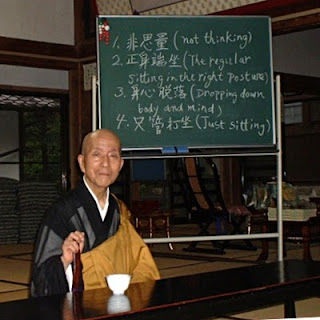 1. 非思量 (not thinking)
2. 正身端坐 (The pegular
sitting in the right posture)
3. 身心脱落 (Dropping down
body and mind)
4. 只管打坐 (Just sitting)